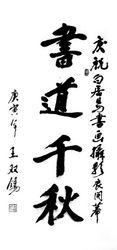 庆祝白居易书画摄影展开幕
書道千秋
庚寅年 王双锡